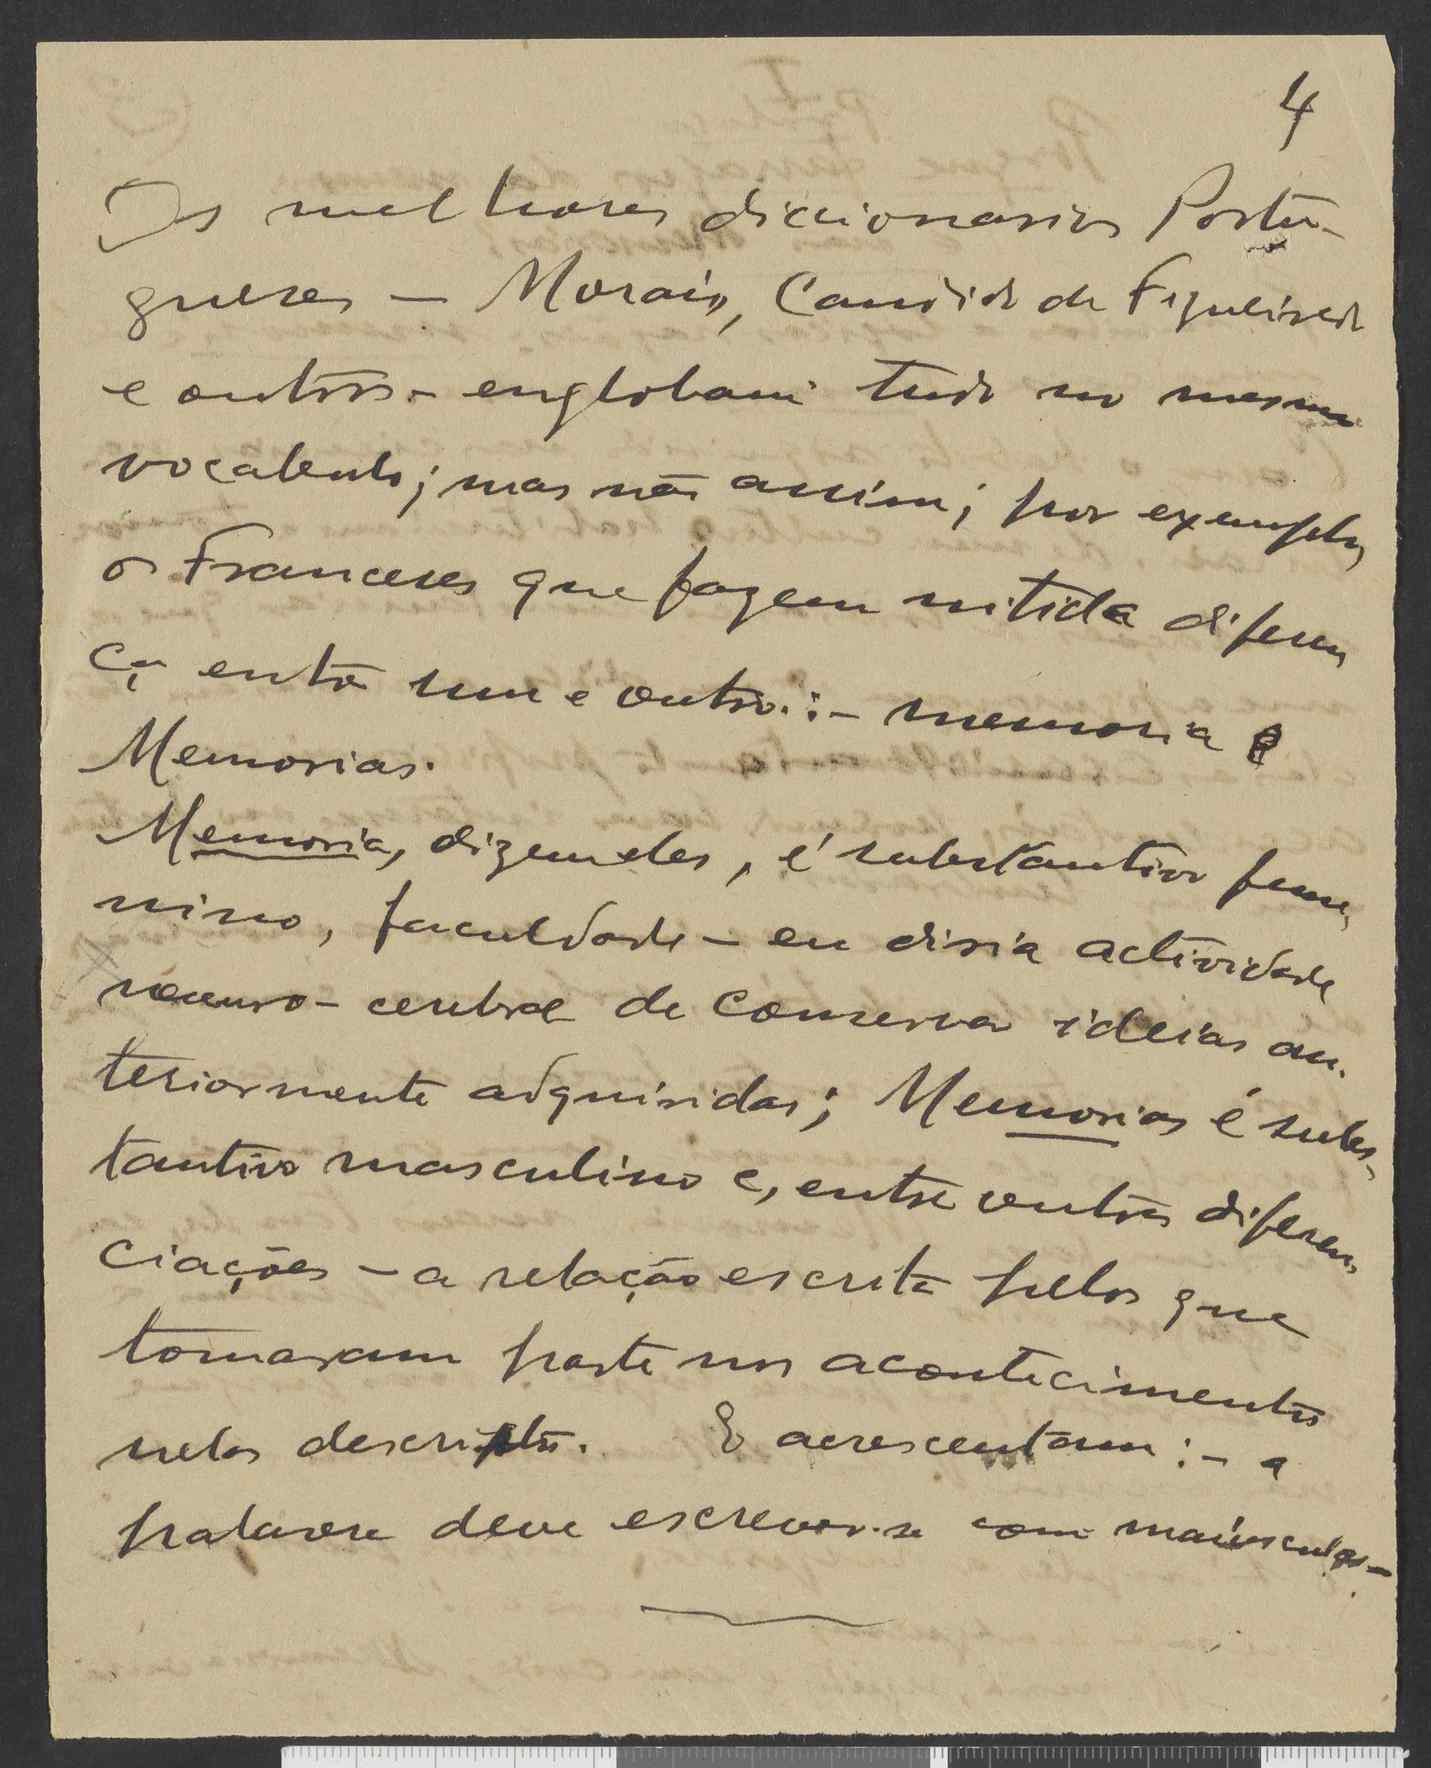 4
Os melhores diccionarios Portu-
gueses — Morais, Candido de Figueiredo
e outros - englobam tudo no mesmo
vocabulo; mas não assim; por exemplo,
os Franceses que fazem nitida diferen
ça entre um e outro: - memoria e
Memorias.
Memoria, dizem eles, é substantivo femi,
nino, faculdade - eu diria actividade
neuro-cerebral de conservar ideias an-
teriormente adquiridas; Memorias é subs-
tantivo masculino e, entre outras diferen,
ciações - a relação escrita pelos que
tomaram parte nos acontecimentos
nelas descriptos. E acrescentam: - a
palavra deve escrever-se com maiusculas-